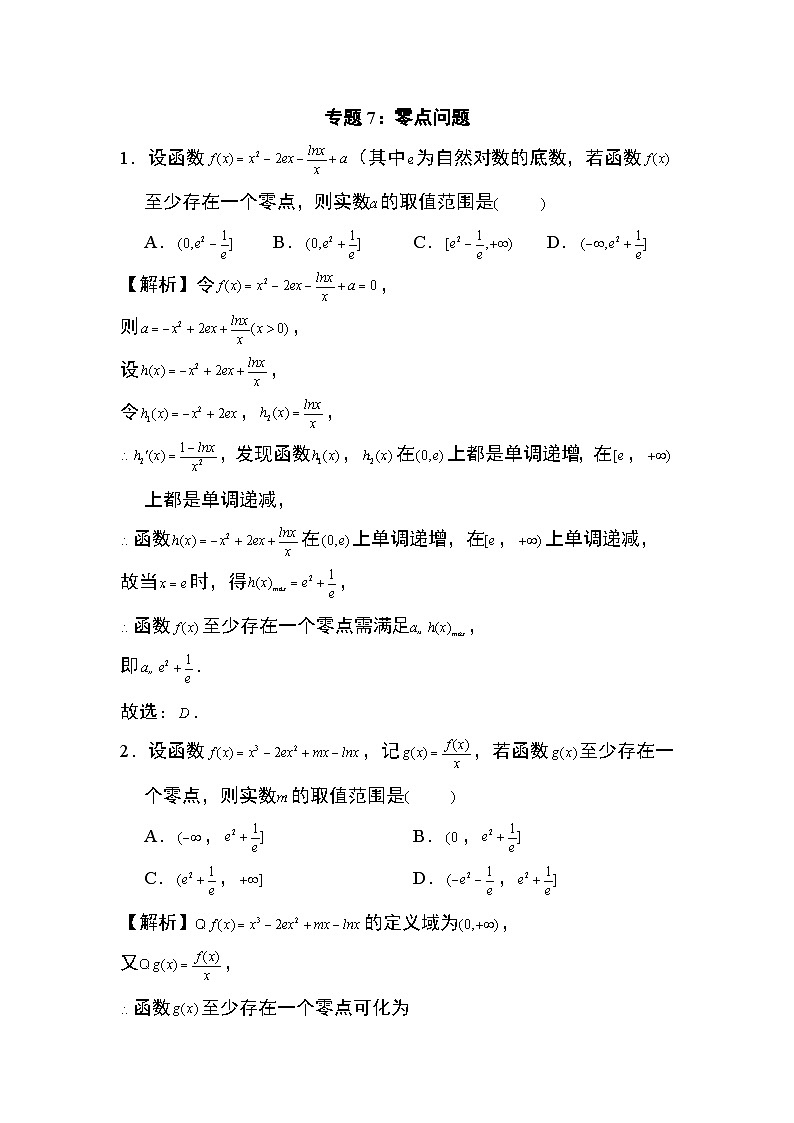 专题 7：零点问题
1．设函数 f(x) = x² − 2ex − lnx/x + a（其中e为自然对数的底数，若函数 f(x)
至少存在一个零点，则实数a的取值范围是(　　)
A．(0,e² − 1/e]　B．(0,e² + 1/e]　C．[e² − 1/e,+∞)　D．(−∞,e² + 1/e]
【解析】令 f(x) = x² − 2ex − lnx/x + a = 0，
则a = −x² + 2ex + lnx/x (x > 0)，
设h(x) = −x² + 2ex + lnx/x，
令h₁(x) = −x² + 2ex，h₂(x) = lnx/x，
∴ h₂′(x) = (1 − lnx)/x²，发现函数h₁(x)，h₂(x)在(0,e)上都是单调递增，在[e，+∞)
上都是单调递减，
∴函数h(x) = −x² + 2ex + lnx/x在(0,e)上单调递增，在[e，+∞)上单调递减，
故当x = e时，得h(x)max = e² + 1/e，
∴函数 f(x)至少存在一个零点需满足a„ h(x)max，
即a„ e² + 1/e．
故选：D．
2．设函数 f(x) = x³ − 2ex² + mx − lnx，记g(x) = f(x)/x，若函数g(x)至少存在一
个零点，则实数m的取值范围是(　　)
A．(−∞，e² + 1/e]　B．(0，e² + 1/e]
C．(e² + 1/e，+∞]　D．(−e² − 1/e，e² + 1/e]
【解析】Q f(x) = x³ − 2ex² + mx − lnx的定义域为(0,+∞)，
又Q g(x) = f(x)/x，
∴函数g(x)至少存在一个零点可化为